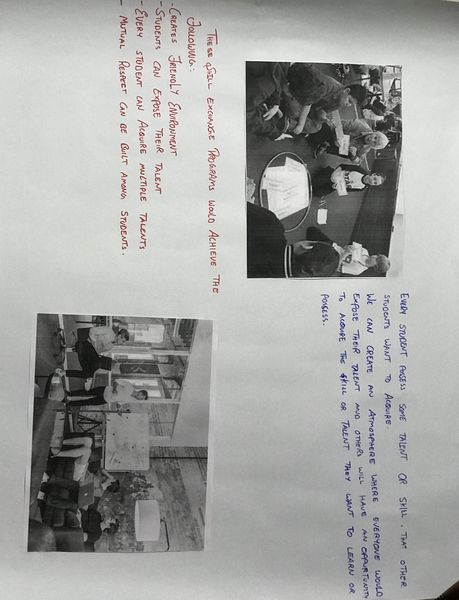 EVERY STUDENT POSSESS SOME TALENT OR SKILL. THAT OTHER
STUDENTS WANT TO ACQUIRE.
WE CAN CREATE AN ATMOSPHERE WHERE EVERYONE WOULD
EXPOSE THEIR TALENT AND OTHERS WILL HAVE AN OPPORTUNITY
TO ACQUIRE THE SKILL OR TALENT THEY WANT TO LEARN OR
POSSESS.
THESE SKILL EXCHANGE PROGRAMS WOULD ACHIEVE THE
FOLLOWING:
- CREATES FRIENDLY ENVIRONMENT
- STUDENTS CAN EXPOSE THEIR TALENT
- EVERY STUDENT CAN ACQUIRE MULTIPLE TALENTS
- MUTUAL RESPECT CAN BE BUILT AMONG STUDENTS.